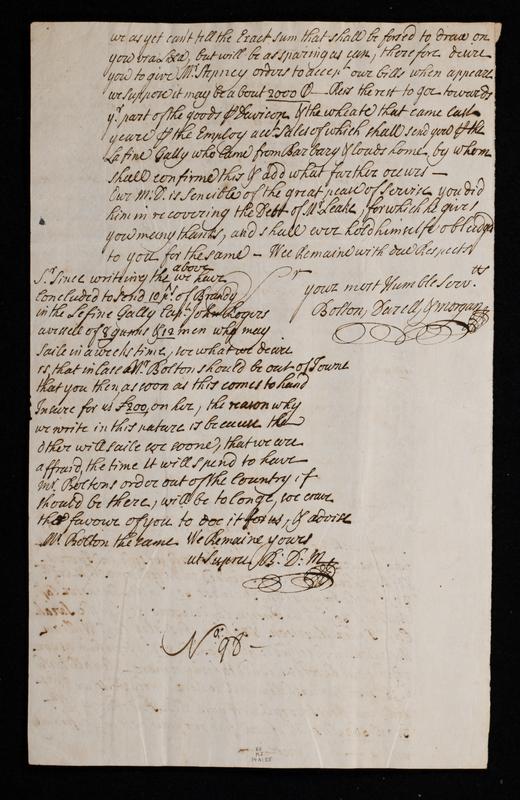 we as yet cant tell the Exact sum that shall be forsed to draw on
you, but will be as sparing as can, therefore desire
you to give Mr. Stepney orders to accep our bills when appeare
we suppose it may be about 2000 @ — Res the rest to goe towards
yr. part of the goods & the wheate that came last
yeare & the Employ acc: Sales of which shall send you & the
Lafine Gally who came from Barbary & loads home by whom
shall confirme this & add what further occurs —
Our M.D. is sensible of the great peace of service you did
him in recovering the Debt of Mr. Leake, for which he gives
you many thanks, and shall ever hold himselfe obliedged
to you for the same — Wee Remaine with due Respects
Sr.
your most Humble Servtts
Bolton, Darell, & Morgan
Sr. Since writeing the above we have
Concluded to send 10 ps. of Brandy
in the Lefine Gally Capt. John Rogers
a vesell of 8 gunns & 12 men who may
saile in a weeks time, soe what we desire
is, that in case Mr. Bolton should be out of Towne
that you then as soon as this comes to hand
Insure for us £200, on her, the reason why
we write in this nature is because the
Other will saile soe soone, that we are
affraid, the time it will spend to have
Mr. Boltons order out of the Country if
should be there, will be to longe, soe crave
the favour of you to doe it for us, & advise
Mr. Bolton the same We Remaine yours
ut Supra B: D: M
No. 98 —